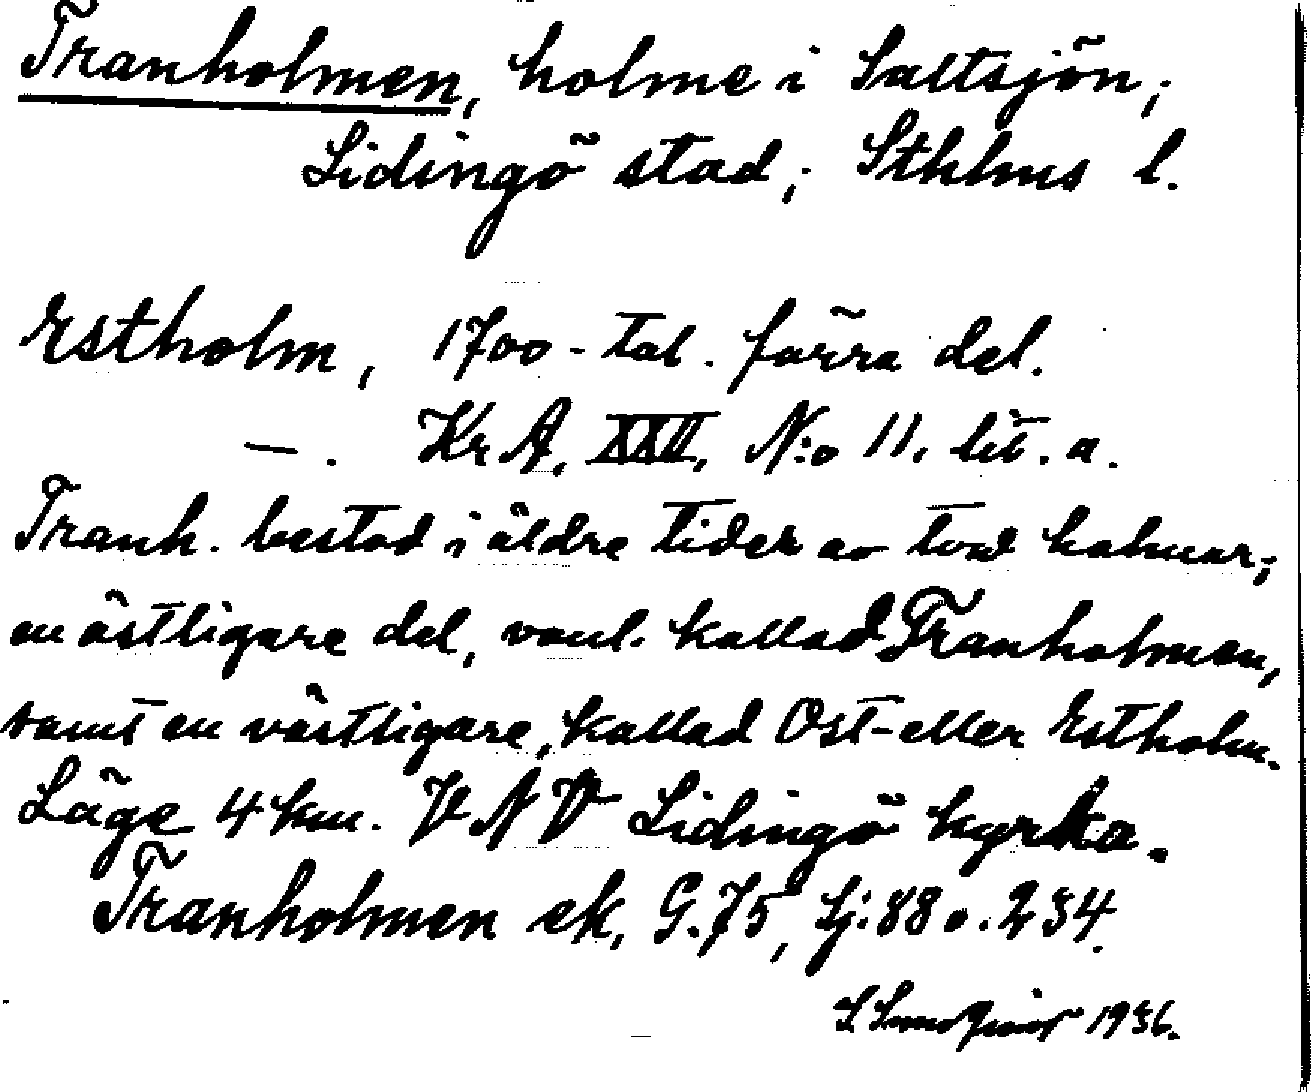 Tranholmen, holme i Saltsjön;
Lidingö stad; Sthlms l.
Estholm, 1700-tal. förra del.
—. Kr A, XXII, N:o 11. lit. a.
Tranh. bestod i äldre tider av två holmar;
en östligare del, vanl. kallad Tranholmen,
samt en västligare, kallad Ost- eller Estholm.
Läge 4 km. VNV Lidingö kyrka.
Tranholmen ek, G. 75, Lj: 88 o. 234.
1936.